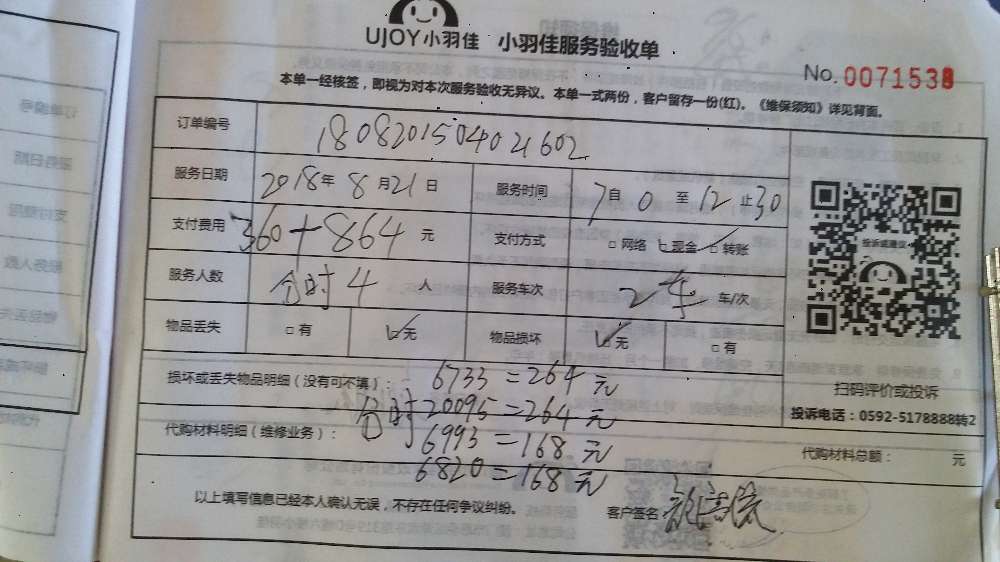 UJOY小羽佳 小羽佳服务验收单
No. 0071538
本单一经核签，即视为对本次服务验收无异议。本单一式两份，客户留存一份(红)。《维保须知》详见背面。
订单编号 1808201504021602
服务日期 2018年8月21日 服务时间 7自0至12止30
支付费用 360+864元 支付方式 □网络 ☑现金 □转账
服务人数 分时4人 服务车次 2车 车/次
物品丢失 □有 ☑无 物品损坏 ☑无 □有
投诉或建议
扫码评价或投诉
投诉电话：0592-5178888转2
损坏或丢失物品明细（没有可不填）： 6733=264元
分时20095=264元
代购材料明细（维修业务）： 6993=168元
6820=168元
代购材料总额： 元
以上填写信息已经本人确认无误，不存在任何争议纠纷。 客户签名